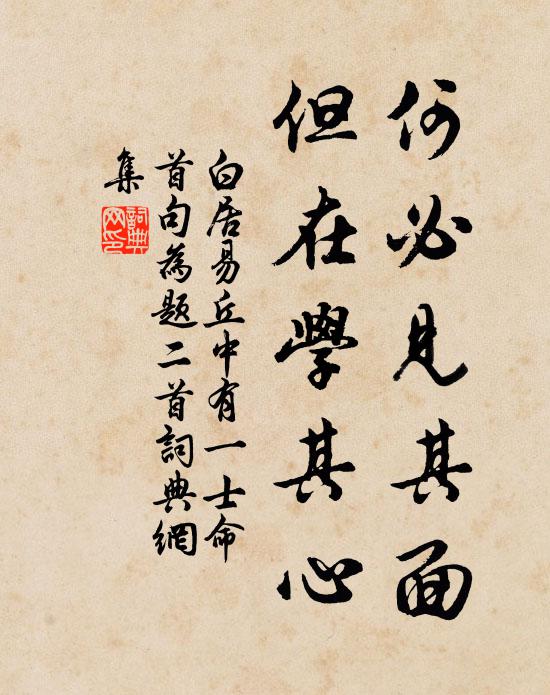 何必見其面
但在學其心
白居易丘中有一士命
首句為題二首詞典網
集
詞典網印